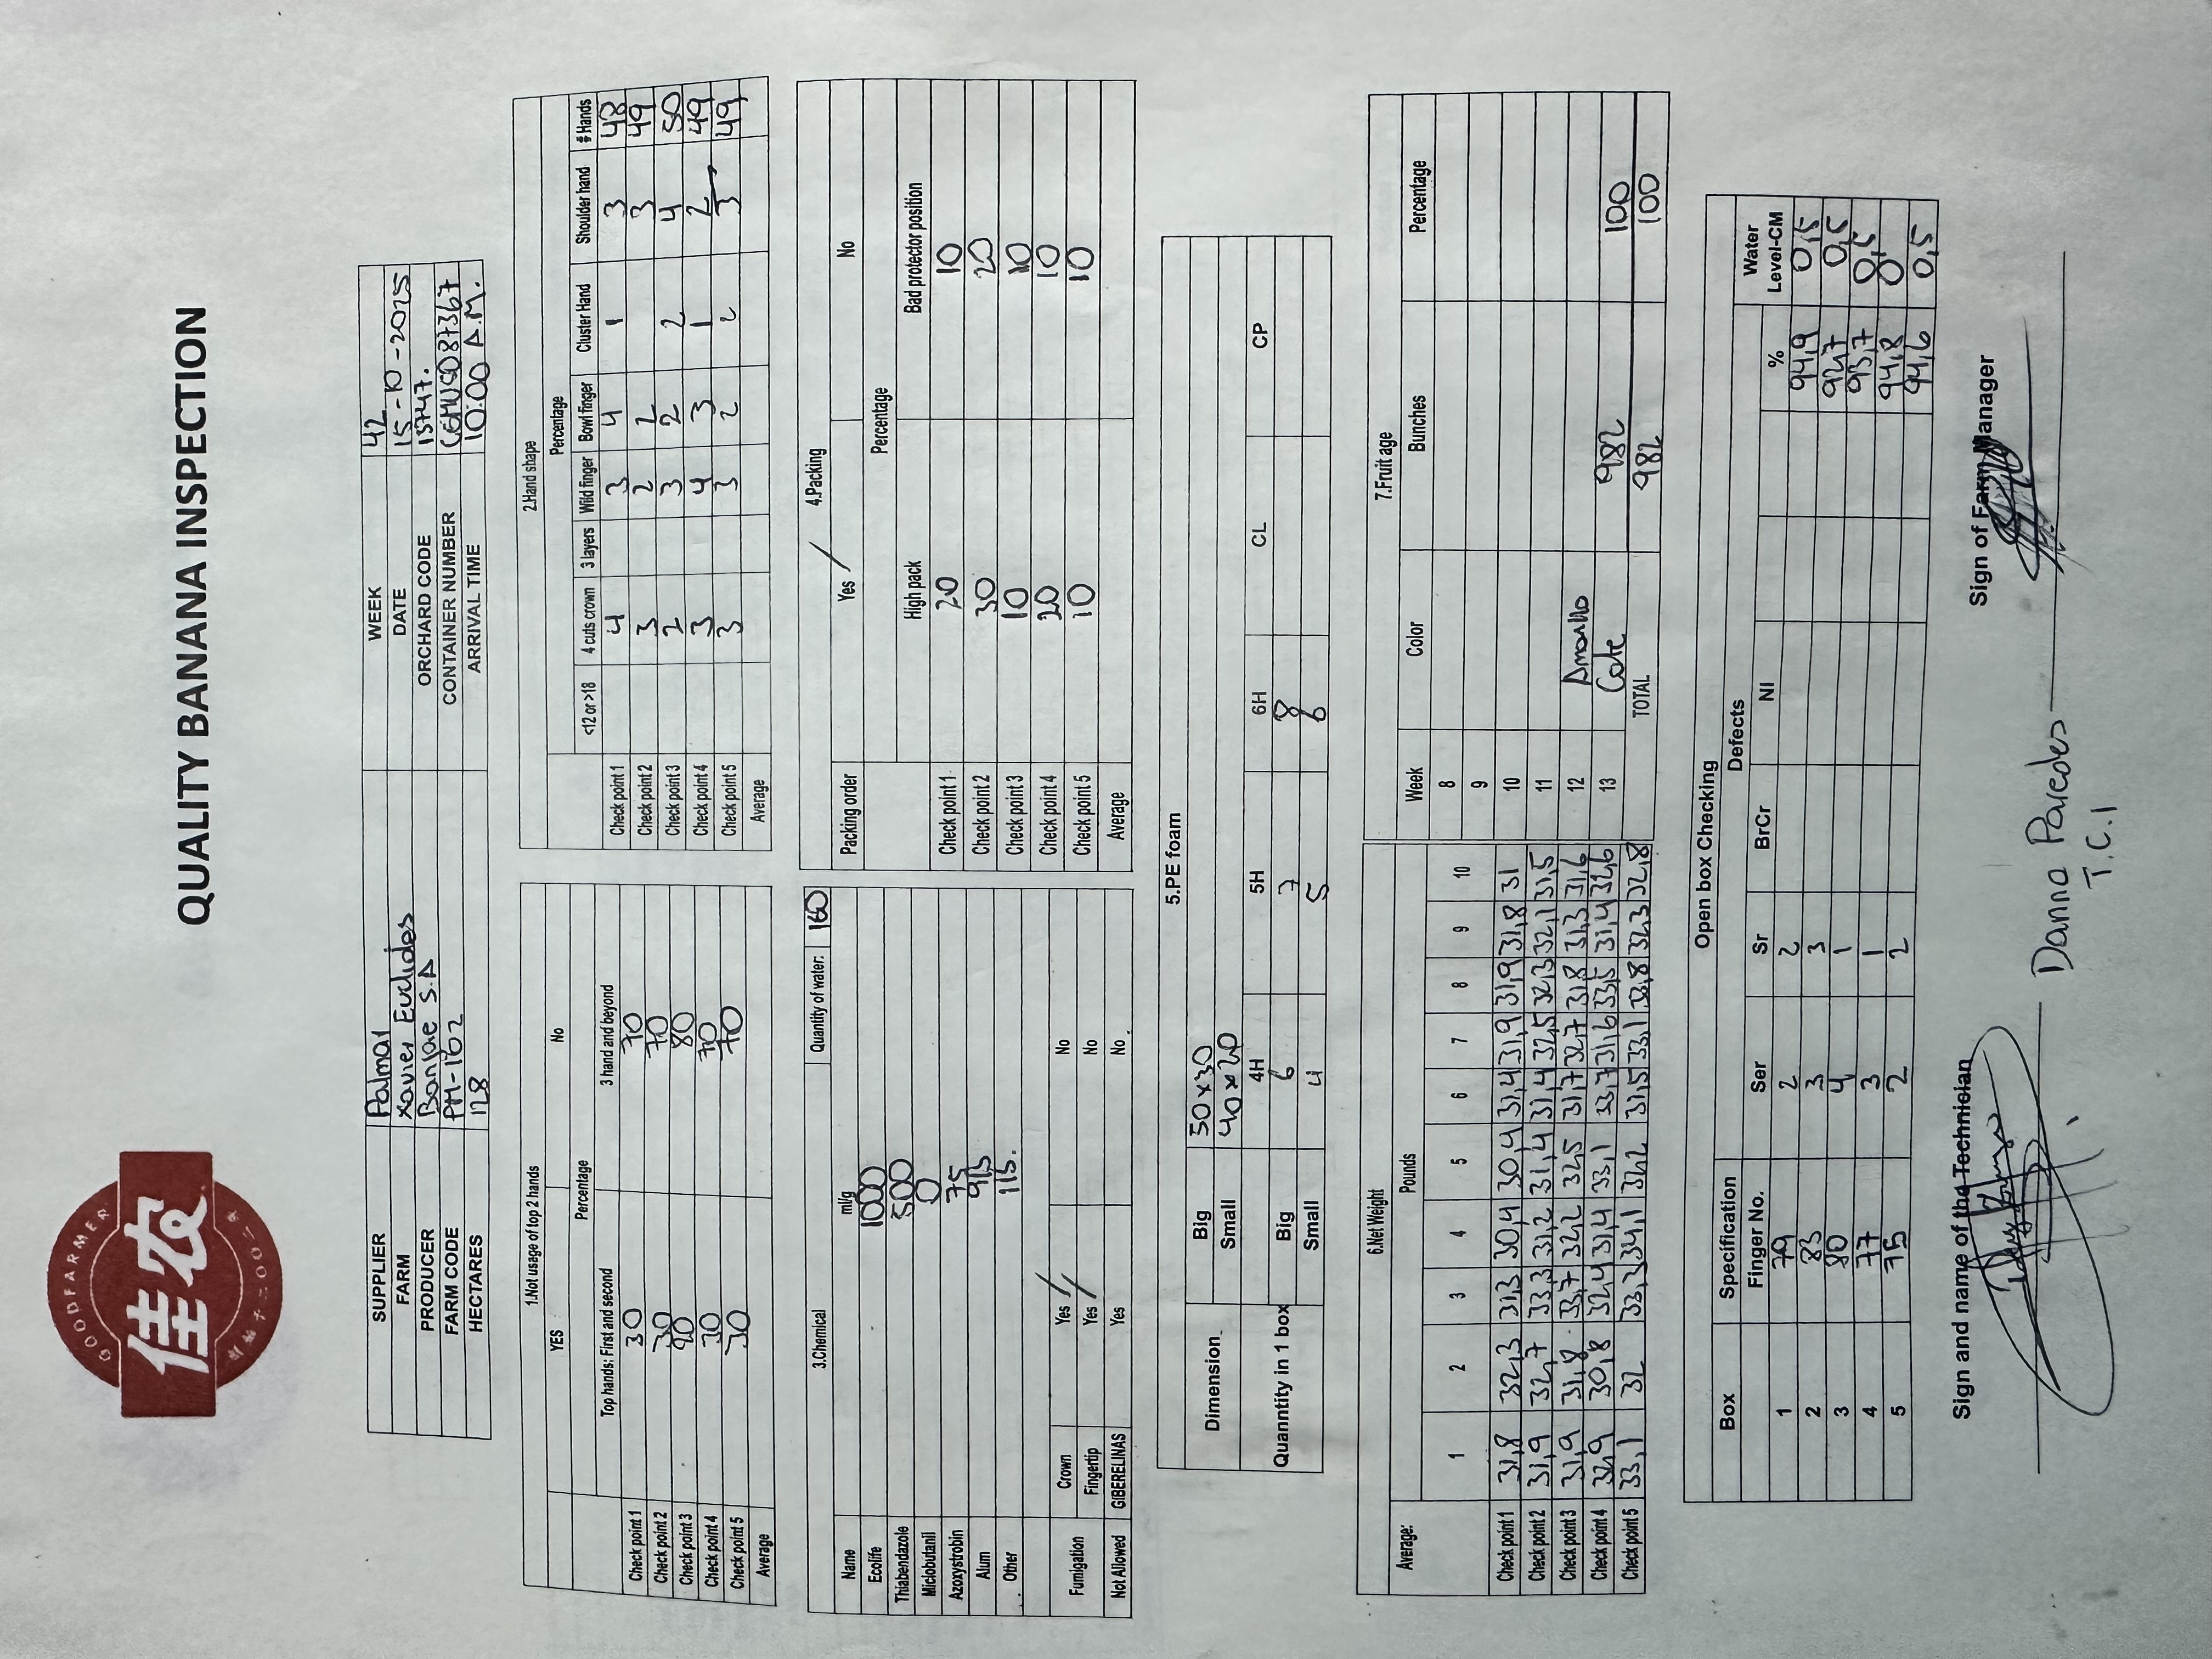 GOODFARMER
佳农
创始于二〇〇二年
QUALITY BANANA INSPECTION
SUPPLIER Palmar WEEK 42
FARM Xavier Euclides DATE 15-10-2025
PRODUCER Banjae S.A ORCHARD CODE 13747.
FARM CODE PM-162 CONTAINER NUMBER
HECTARES 128 ARRIVAL TIME 10:00 A.M.
1.Not usage of top 2 hands
YES No
Percentage
Top hands: First and second 3 hand and beyond
Check point 1 30 70
Check point 2 30 70
Check point 3 20 80
Check point 4 30 70
Check point 5 30 70
Average
2.Hand shape
Percentage
<12 or >18 4 cuts crown 3 layers Wild finger Bowl finger Cluster Hand Shoulder hand # Hands
Check point 1 4 3 4 1 3 48
Check point 2 3 2 2 3 49
Check point 3 2 3 2 2 4 50
Check point 4 3 4 3 1 2 49
Check point 5 3 3 2 2 3 49
Average
3.Chemical Quantity of water: 160
Name ml/g
Ecolife 1000
Thiabendazole 500
Miclobutanil 0
Azoxystrobin 75
Alum
Other 115.
Fumigation Crown Yes / No
Fingertip Yes / No
Not Allowed GIBERELINAS Yes No
4.Packing
Packing order Yes / No
Percentage
High pack Bad protector position
Check point 1 20 10
Check point 2 30 20
Check point 3 10 10
Check point 4 20 10
Check point 5 10 10
Average
5.PE foam
Dimension Big 50x30
Small 40x20
4H 5H 6H CL CP
Quanntity in 1 box Big 6 7 8
Small 4 5 6
6.Net Weight
Average: Pounds
1 2 3 4 5 6 7 8 9 10
Check point 1 31,8 32,3 31,3 30,4 30,4 31,4 31,9 31,9 31,8 31
Check point 2 31,9 32,7 33,3 31,2 31,4 31,4 32,5 32,3 32,1 31,5
Check point 3 31,9 31,8 33,7 32,2 32,5 31,7 32,7 31,8 31,3 31,6
Check point 4 32,9 30,8 32,4 31,4 33,1 33,7 31,6 33,5 31,4 32,6
Check point 5 33,1 32 33,3 34,1 32,2 31,5 33,1 33,8 32,3 32,8
7.Fruit age
Week Color Bunches Percentage
8
9
10
11
12 Amarillo
13 Cafe 982 100
TOTAL 982 100
Open box Checking
Box Specification Defects Water
Finger No. Ser Sr BrCr NI % Level-CM
1 79 2 2 94,9 0,5
2 83 3 3 92,7 0,5
3 80 4 1 93,7 0,5
4 77 3 1 94,8 0
5 75 2 2 94,6 0,5
Sign and name of the Technician
Sign of Farm Manager
Danna Paredes
T.C.I